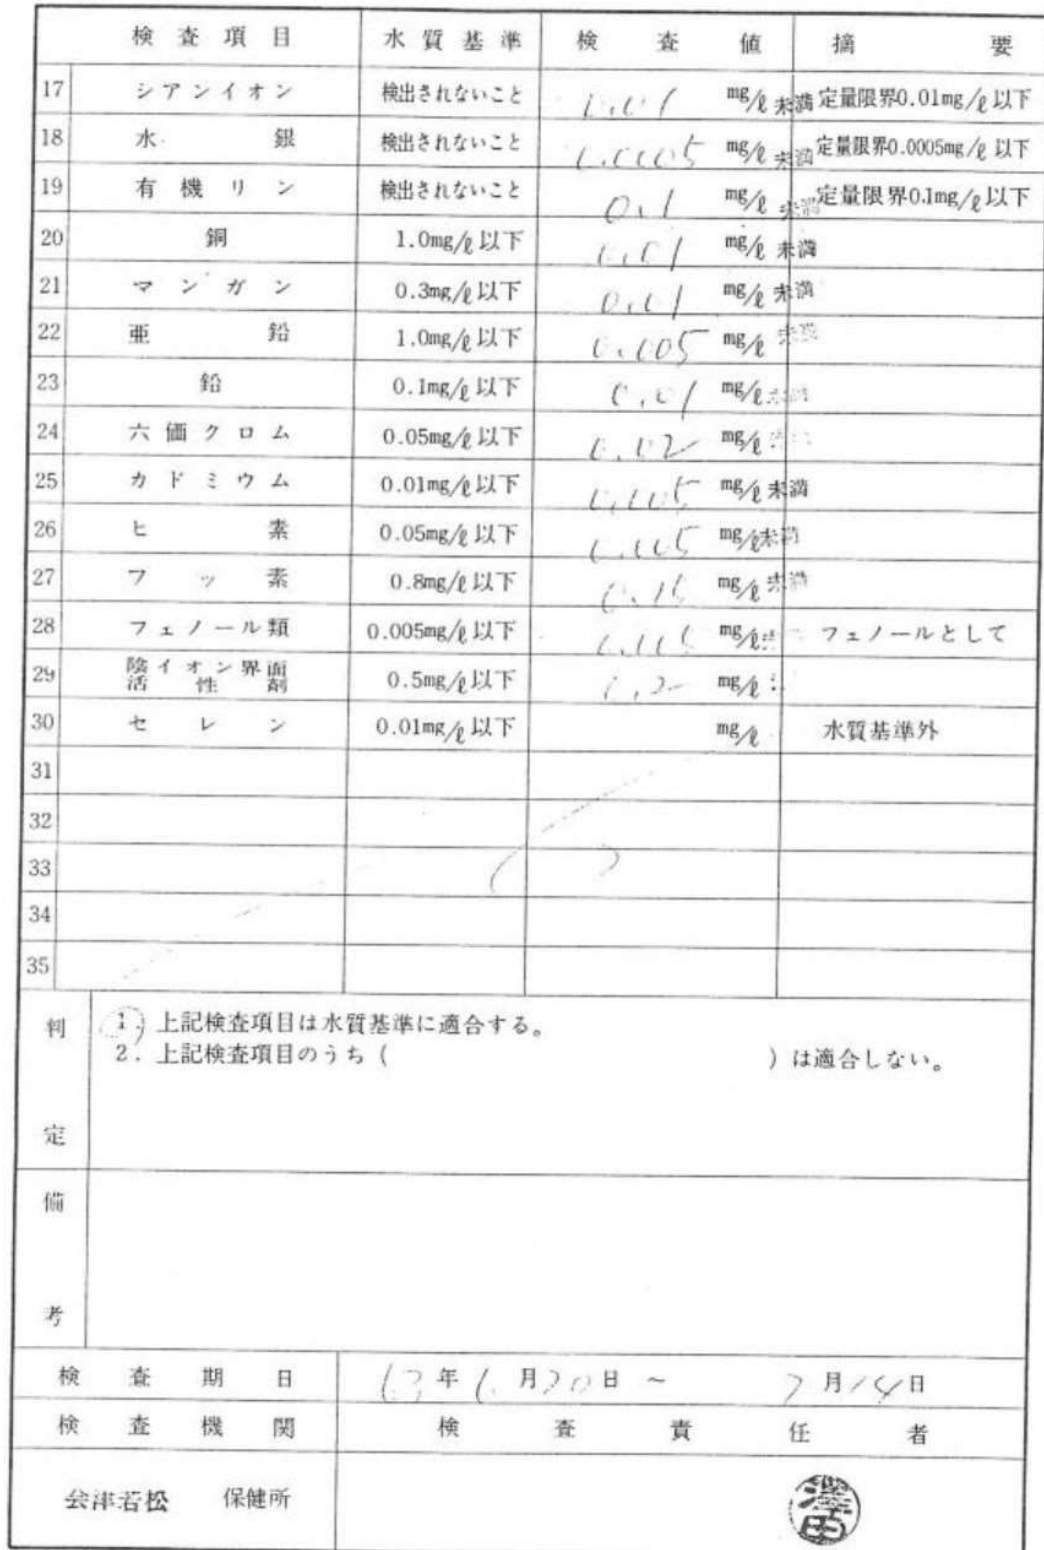 検査項目 水質基準 検査値 摘要
17 シアンイオン 検出されないこと 0.01 mg/ℓ 未満 定量限界0.01mg/ℓ以下
18 水銀 検出されないこと 0.0005 mg/ℓ 未満 定量限界0.0005mg/ℓ以下
19 有機リン 検出されないこと 0.1 mg/ℓ 未満 定量限界0.1mg/ℓ以下
20 銅 1.0mg/ℓ以下 0.01 mg/ℓ 未満
21 マンガン 0.3mg/ℓ以下 0.01 mg/ℓ 未満
22 亜鉛 1.0mg/ℓ以下 0.005 mg/ℓ 未満
23 鉛 0.1mg/ℓ以下 0.01 mg/ℓ 未満
24 六価クロム 0.05mg/ℓ以下 0.02 mg/ℓ
25 カドミウム 0.01mg/ℓ以下 0.005 mg/ℓ 未満
26 ヒ素 0.05mg/ℓ以下 0.005 mg/ℓ 未満
27 フッ素 0.8mg/ℓ以下 mg/ℓ 未満
28 フェノール類 0.005mg/ℓ以下 0.005 mg/ℓ フェノールとして
29 陰イオン界面活性剤 0.5mg/ℓ以下 0.2 mg/ℓ
30 セレン 0.01mg/ℓ以下 mg/ℓ 水質基準外
31
32
33
34
35
判定
1. 上記検査項目は水質基準に適合する。
2. 上記検査項目のうち（ ）は適合しない。
備考
検査期日 63年6月20日 ～ 7月14日
検査機関 検査責任者
会津若松 保健所 澤田